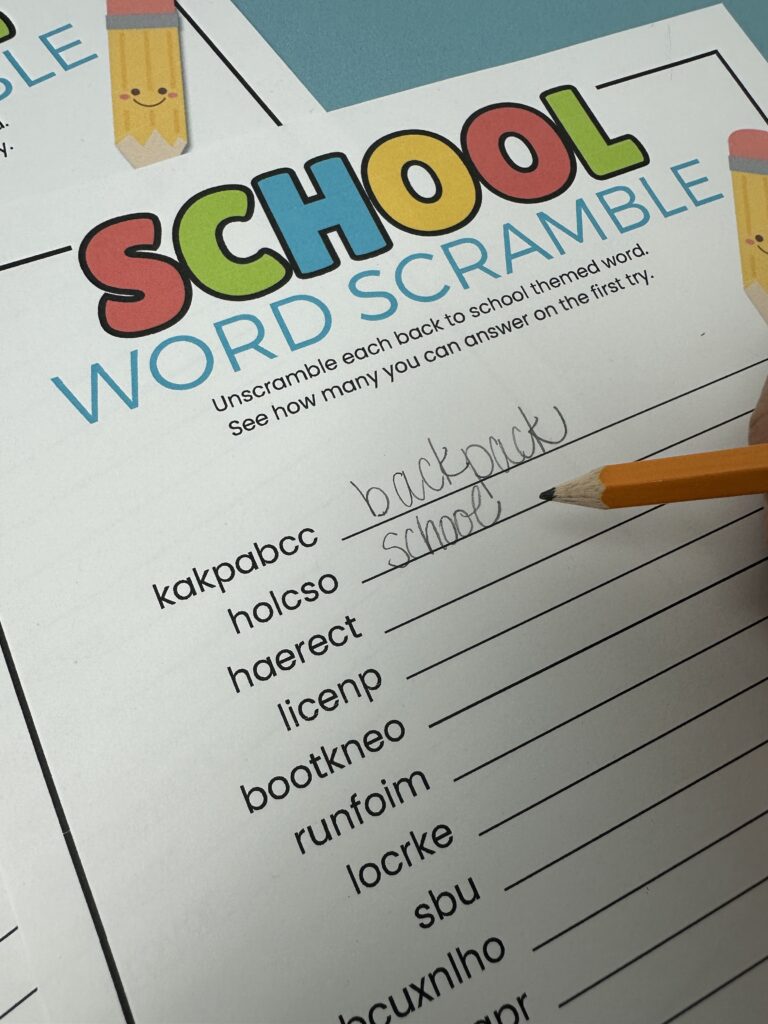 SCHOOL
WORD SCRAMBLE
Unscramble each back to school themed word.
See how many you can answer on the first try.
kakpabcc backpack
holcso school
haerect
licenp
bootkneo
runfoim
locrke
sbu